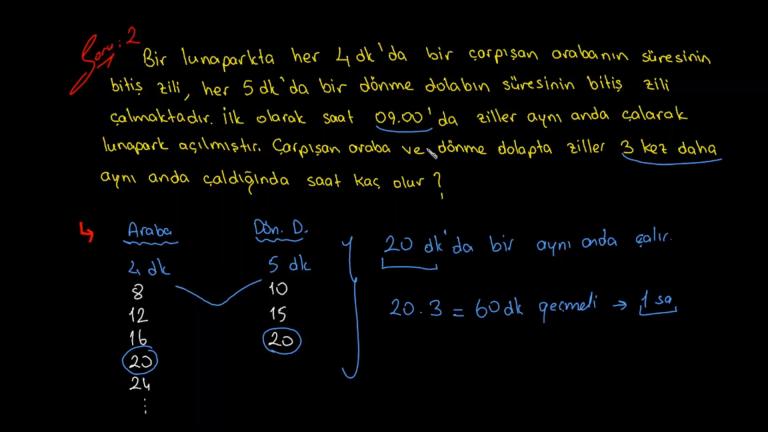 Soru: 2
Bir lunaparkta her 4 dk'da bir çarpışan arabanın süresinin
bitiş zili, her 5 dk'da bir dönme dolabın süresinin bitiş zili
çalmaktadır. İlk olarak saat 09.00'da ziller aynı anda çalarak
lunapark açılmıştır. Çarpışan araba ve dönme dolapta ziller 3 kez daha
aynı anda çaldığında saat kaç olur?
Araba Dön. D.
4 dk 5 dk
8 10
12 15
16 20
20
24
20 dk'da bir aynı anda çalır.
20.3 = 60 dk geçmeli → 1 sa